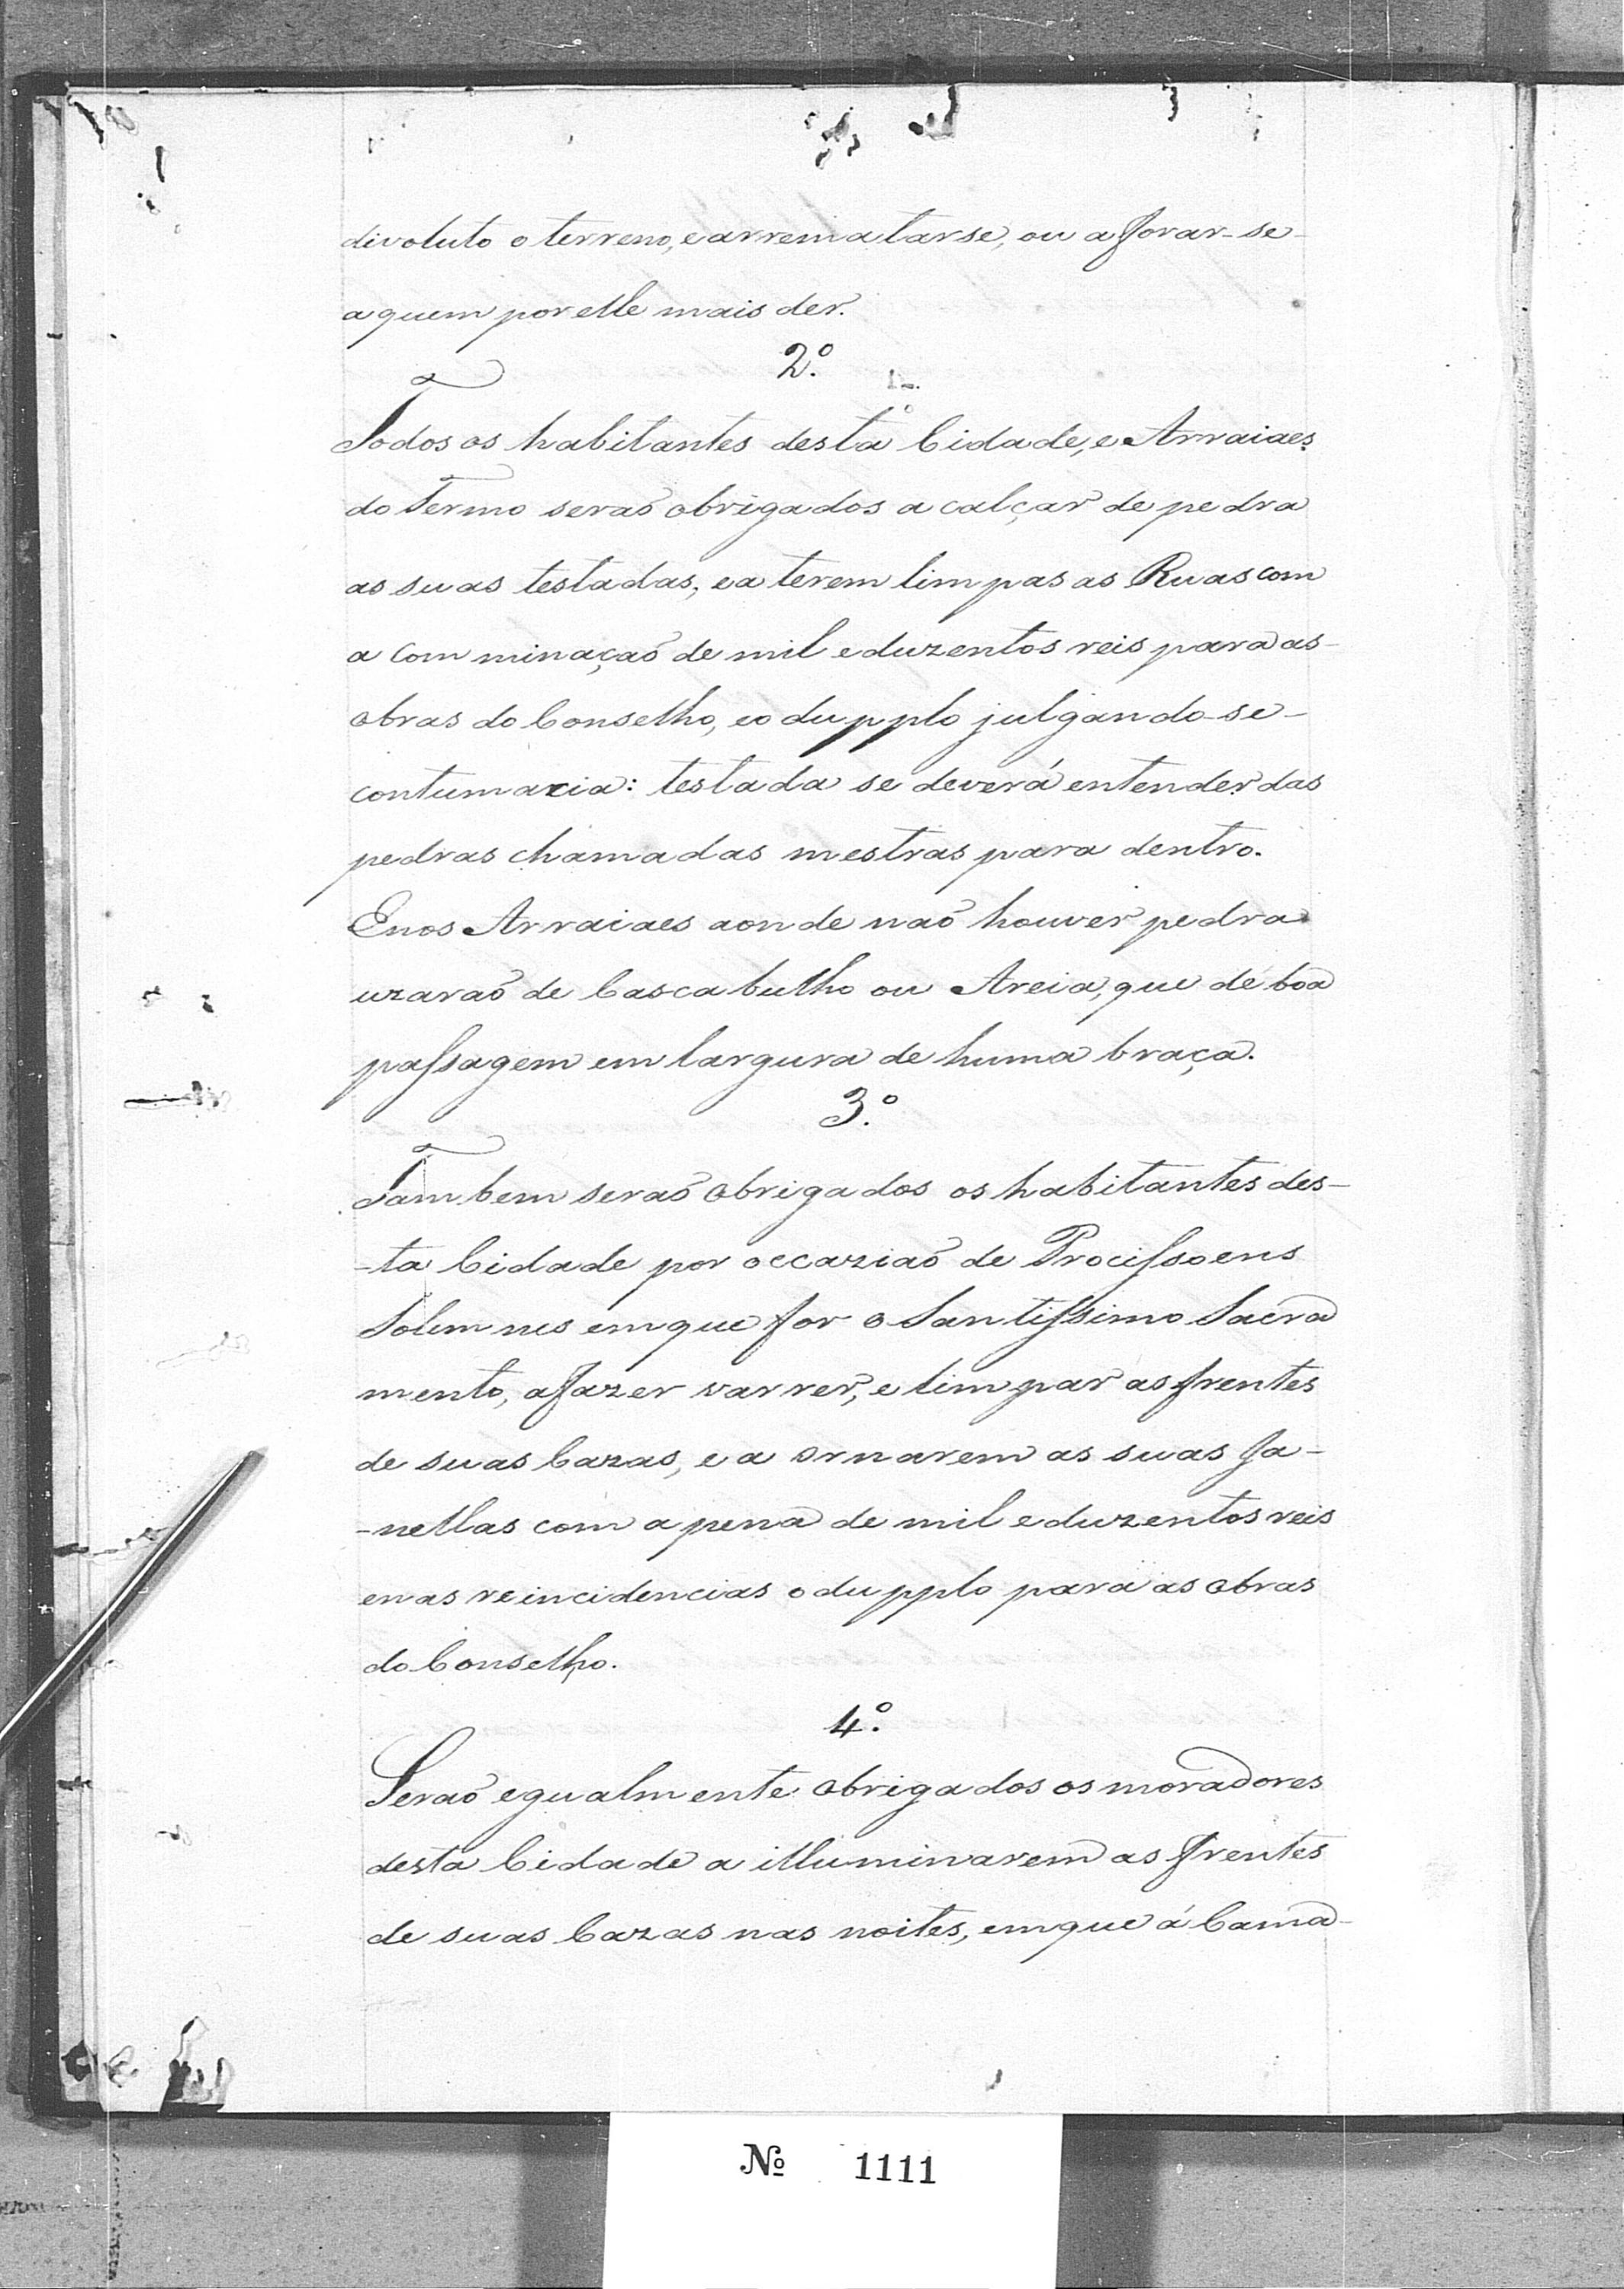 divoluto o terreno, e arrematarse, ou aforar-se
a quem por elle mais der.
2.º
Todos os habitantes desta Cidade, e Arraiaes
do Termo seraõ obrigados a calçar de pedra
as suas testadas, e a terem limpas as Ruas com
a comminaçaõ de mil e duzentos reis para as
obras do Conselho, e o dupplo julgando-se
contumacia: testada se deverá entender das
pedras chamadas mestras para dentro.
E nos Arraiaes aonde naõ houver pedra
uzaraõ de Cascabulho ou Areia, que dé boa
passagem em largura de huma braça.
3.º
Tambem seraõ obrigados os habitantes des-
-ta Cidade por occaziaõ de Procissoens
Solemnes em que for o Santissimo Sacra
mento, a fazer varrer, e limpar as frentes
de suas Cazas, e a ornarem as suas Ja-
-nellas com a pena de mil e duzentos reis
e nas reincidencias o dupplo para as obras
do Conselho.
4.º
Seraõ egualmente obrigados os moradores
desta Cidade a illuminarem as frentes
de suas Cazas nas noites, em que á Cama-
Nº 1111